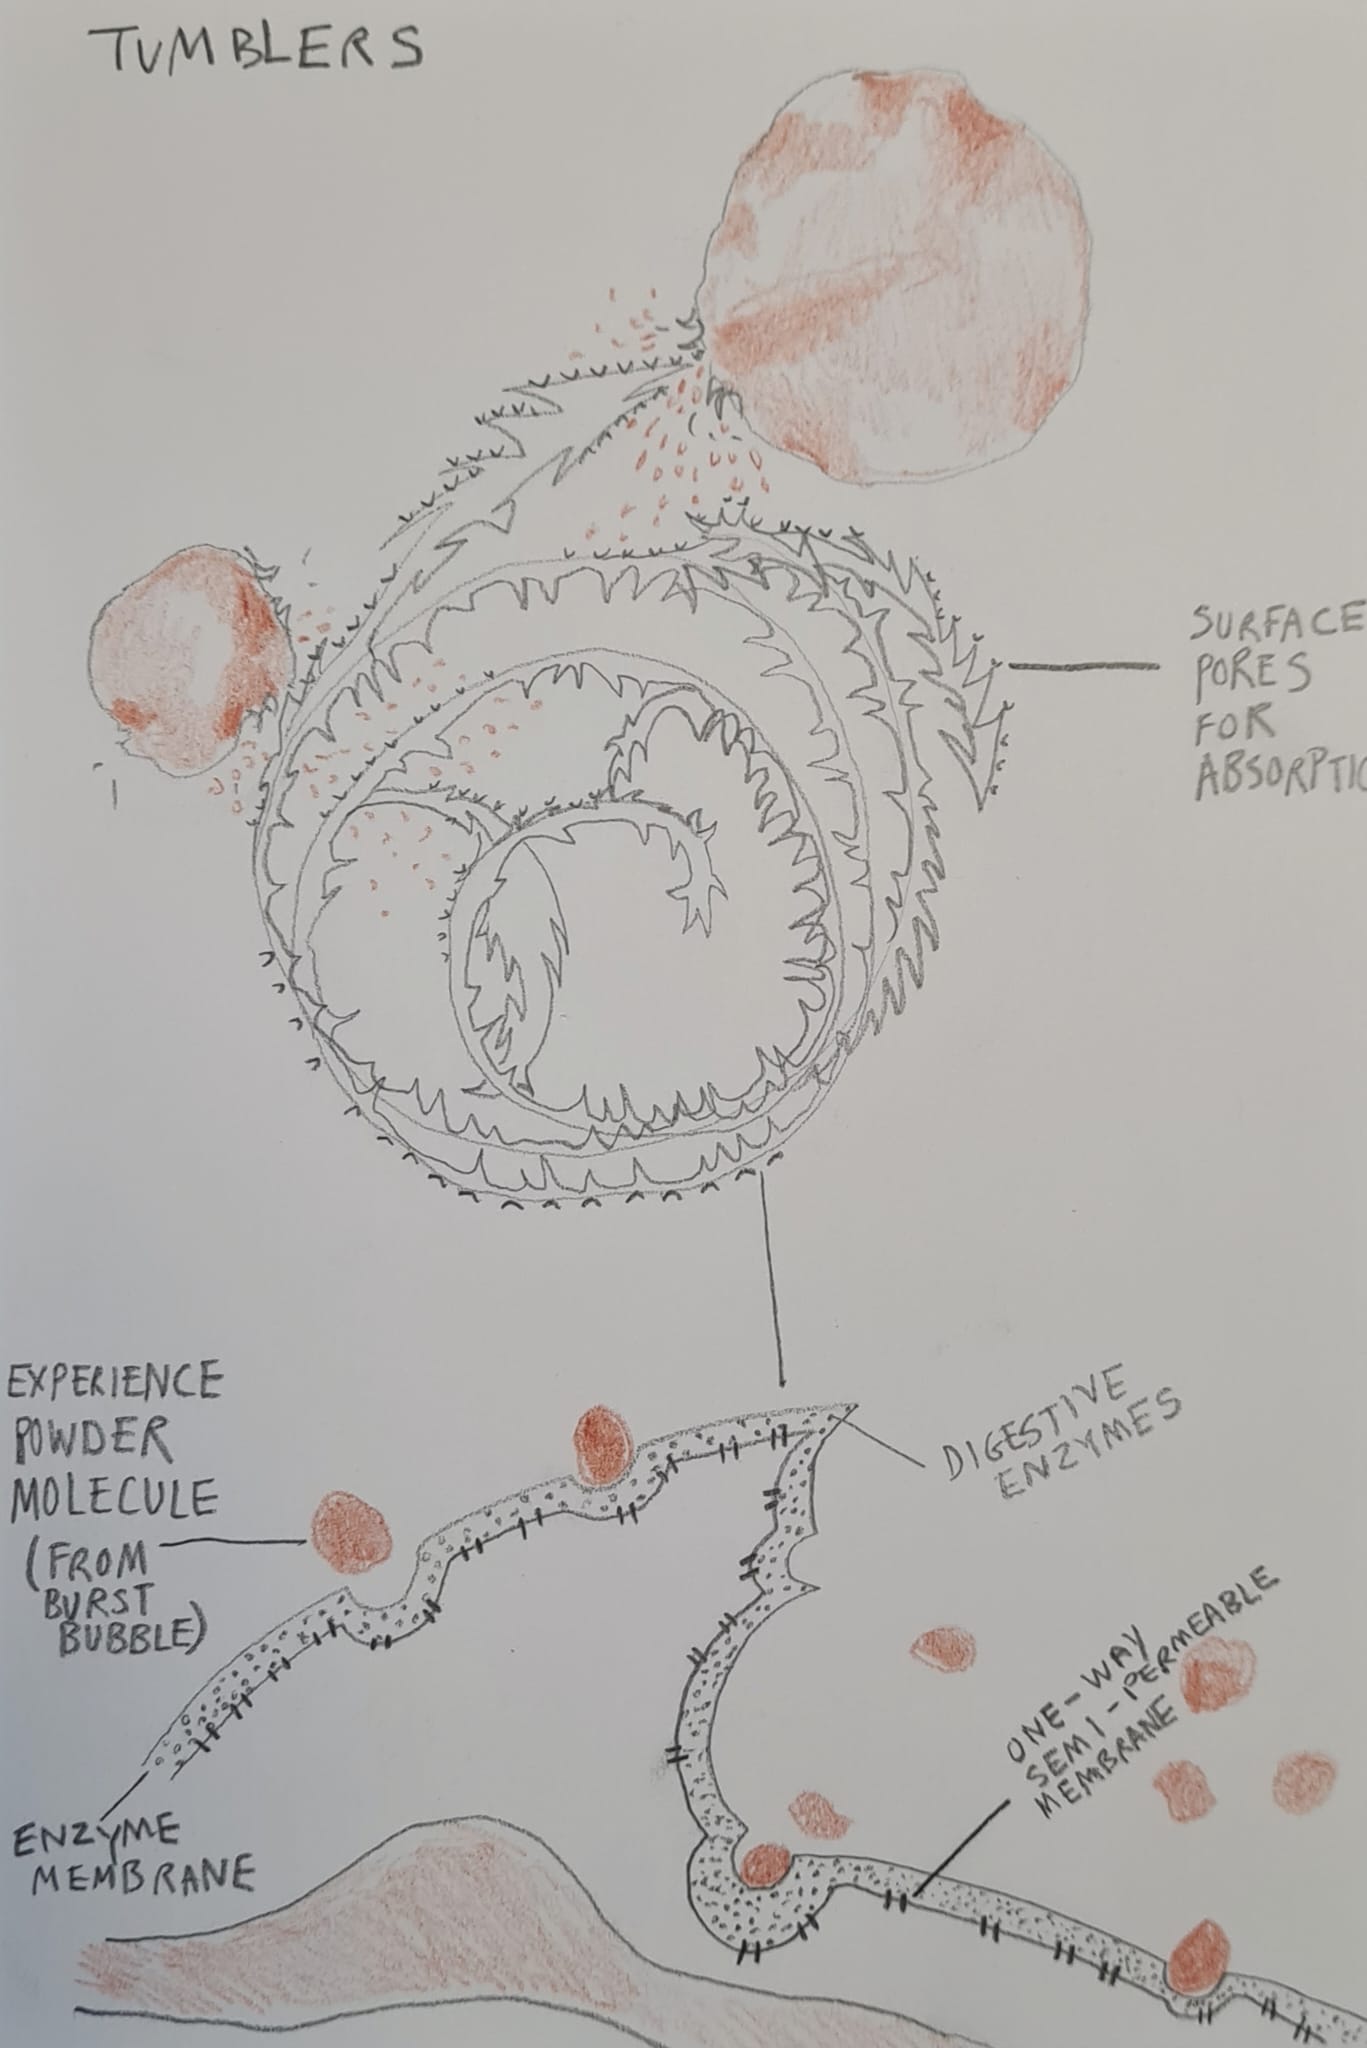 TUMBLERS
SURFACE
PORES
FOR
ABSORPTIO
EXPERIENCE
POWDER
MOLECULE
(FROM
BURST
BUBBLE)
DIGESTIVE
ENZYMES
ONE-WAY
SEMI-PERMEABLE
MEMBRANE
ENZYME
MEMBRANE